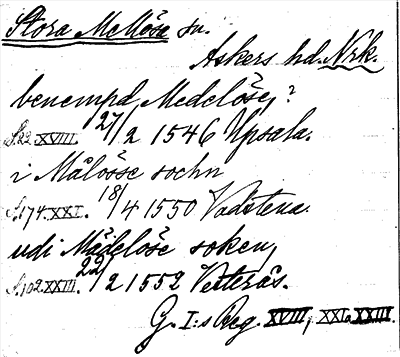 Stora Mellösa sn.
Askers hd. Nrk.
benempd Medelöse?
S.22.XVIII. 27/2 1546 Upsala.
i Målösse sochn
S.174.XXI. 18/4 1550 Vadstena.
udi Mädelöse soken,
S.102.XXIII. 22/2 1552 Vesterås.
G. I:s Reg. XVIII, XXI, XXIII.